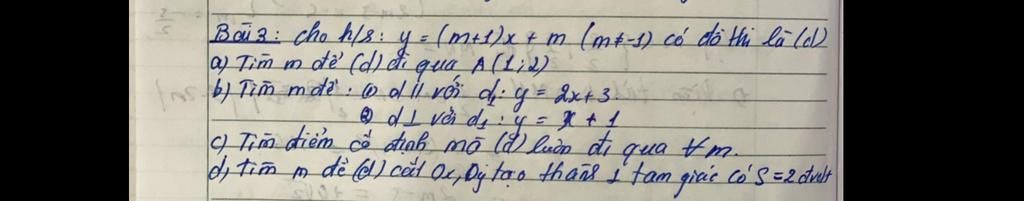 Bài 3: cho h/s: y = (m+1)x + m (m≠-1) có đồ thị là (d)
a) Tìm m để (d) đi qua A(1;2)
b) Tìm m để: ① d // với d₁: y = 2x+3.
② d ⊥ với d₁: y = x + 1
c) Tìm điểm cố định mà (d) luôn đi qua ∀m.
d, Tìm m để (d) cắt Ox, Oy tạo thành 1 tam giác có S = 2 đvdt